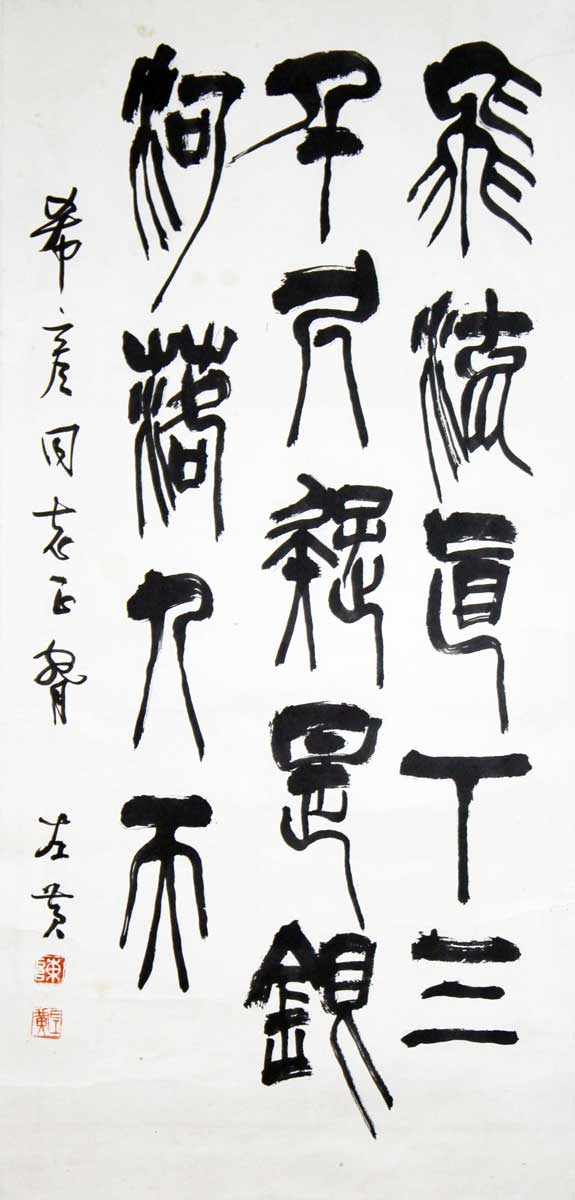 飛流直下三
千尺疑是銀
河落九天
希彦同志正
左黄
左黄